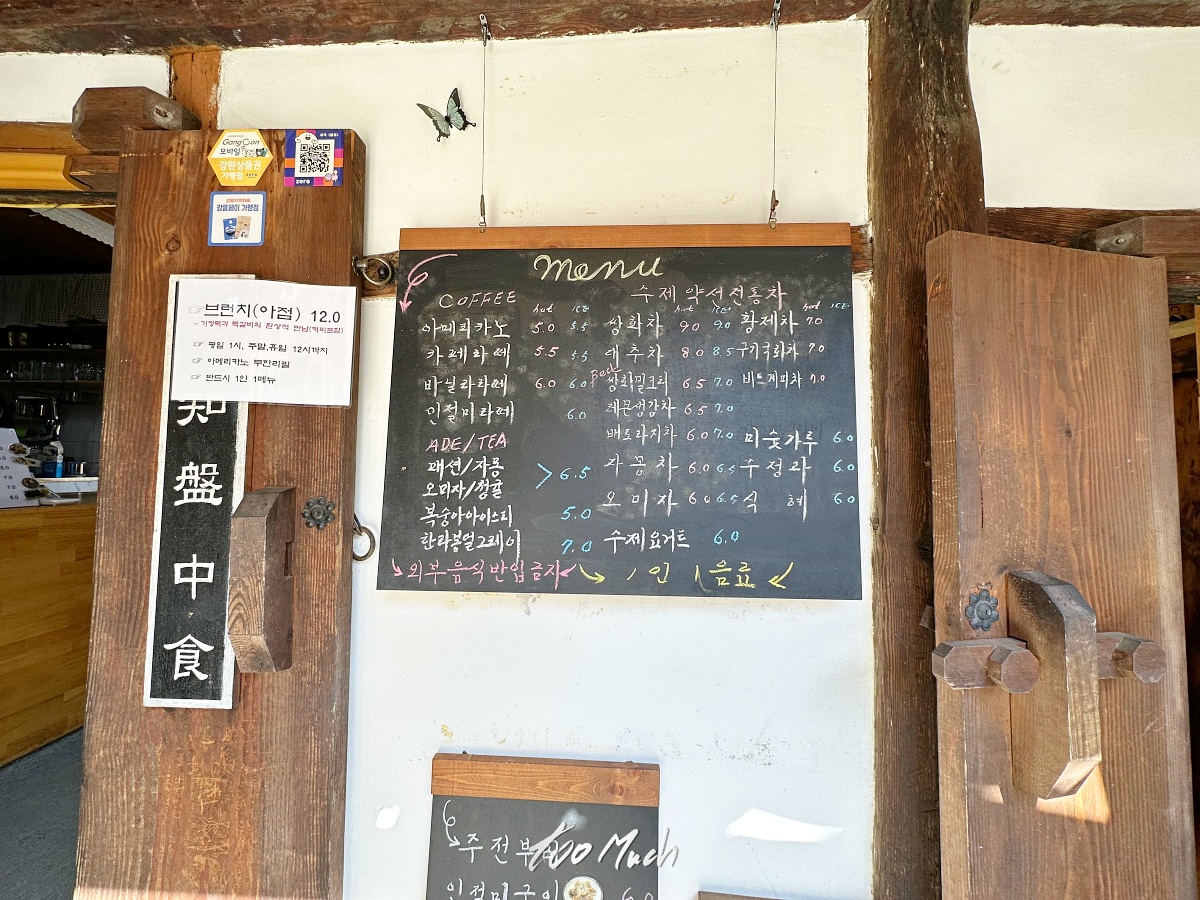 GangOon
모바일
강원상품권
가맹점
zero
강릉페이 가맹점
브런치(아점) 12.0
- 기정떡과 떡갈비의 환상적 만남(커피포함)
평일 1시, 주말,휴일 12시까지
아메리카노 무한리필
반드시 1인 1메뉴
知
盤
中
食
menu
COFFEE
hot ICE
아메리카노 5.0 5.5
카페라떼 5.5 5.5
바닐라라떼 6.0 6.0
인절미라떼 6.0
ADE/TEA
패션/자몽
오미자/청귤 > 6.5
복숭아아이스티 5.0
한라봉얼그레이 7.0
외부음식반입금지
수제약선전통차
hot ICE
쌍화차 9.0 9.0
대추차 8.0 8.5
쌍화밀크티 6.5 7.0
레몬생강차 6.5 7.0
배도라지차 6.0 7.0
자몽차 6.0 6.5
오미자 6.0 6.5
수제요거트 6.0
hot ICE
황제차 7.0
구기국화차 7.0
비트계피차 7.0
미숫가루 6.0
수정과 6.0
식혜 6.0
1인 1음료
주전부리
too Much
인절미구이 6.0